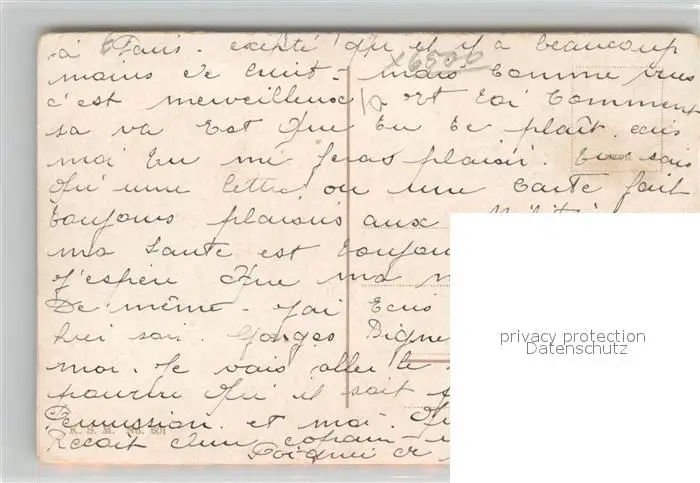 à Paris. excepté qu il y a beaucoup
x6500
moins de bruit - mais comme vues
c'est merveilleuse et toi comment
sa va est que tu te plait. ecris
moi tu me feras plaisir. tu sais
qu'une lettre ou une carte fait
toujours plaisir aux
ma santé est toujou
j'espère que ma m
De même - j'ai ecris
hui soir. Georges
moi. Je vais aller le
qu'il soit
Permission. et moi.
K. S. M. No. 601
d'un copain
privacy protection
Datenschutz